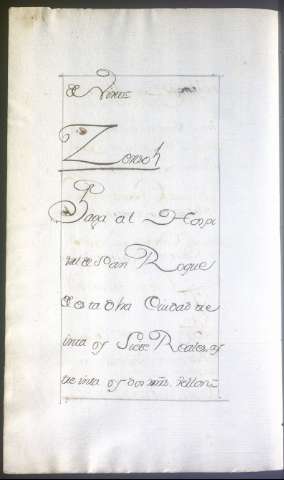 de Nonis
Zorroh
Paga al Hospi
tal de San Roque
de esta dha Ciudad tre
inta y Siete Reales, y
treinta y dos mrs. Vellon